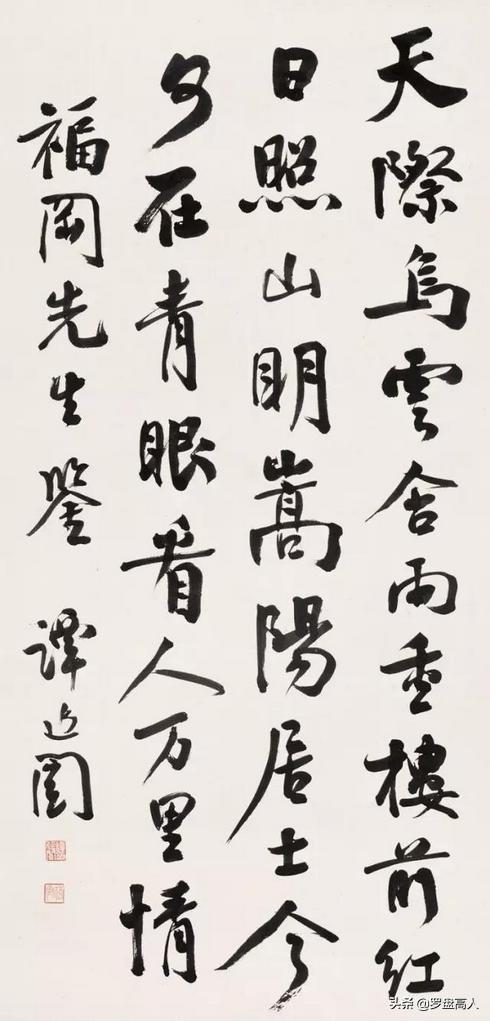 天際烏雲含雨重樓前紅
日照山明嵩陽居士今
何在青眼看人万里情
福岡先生鑒 譚延闓
头条 @罗盘高人